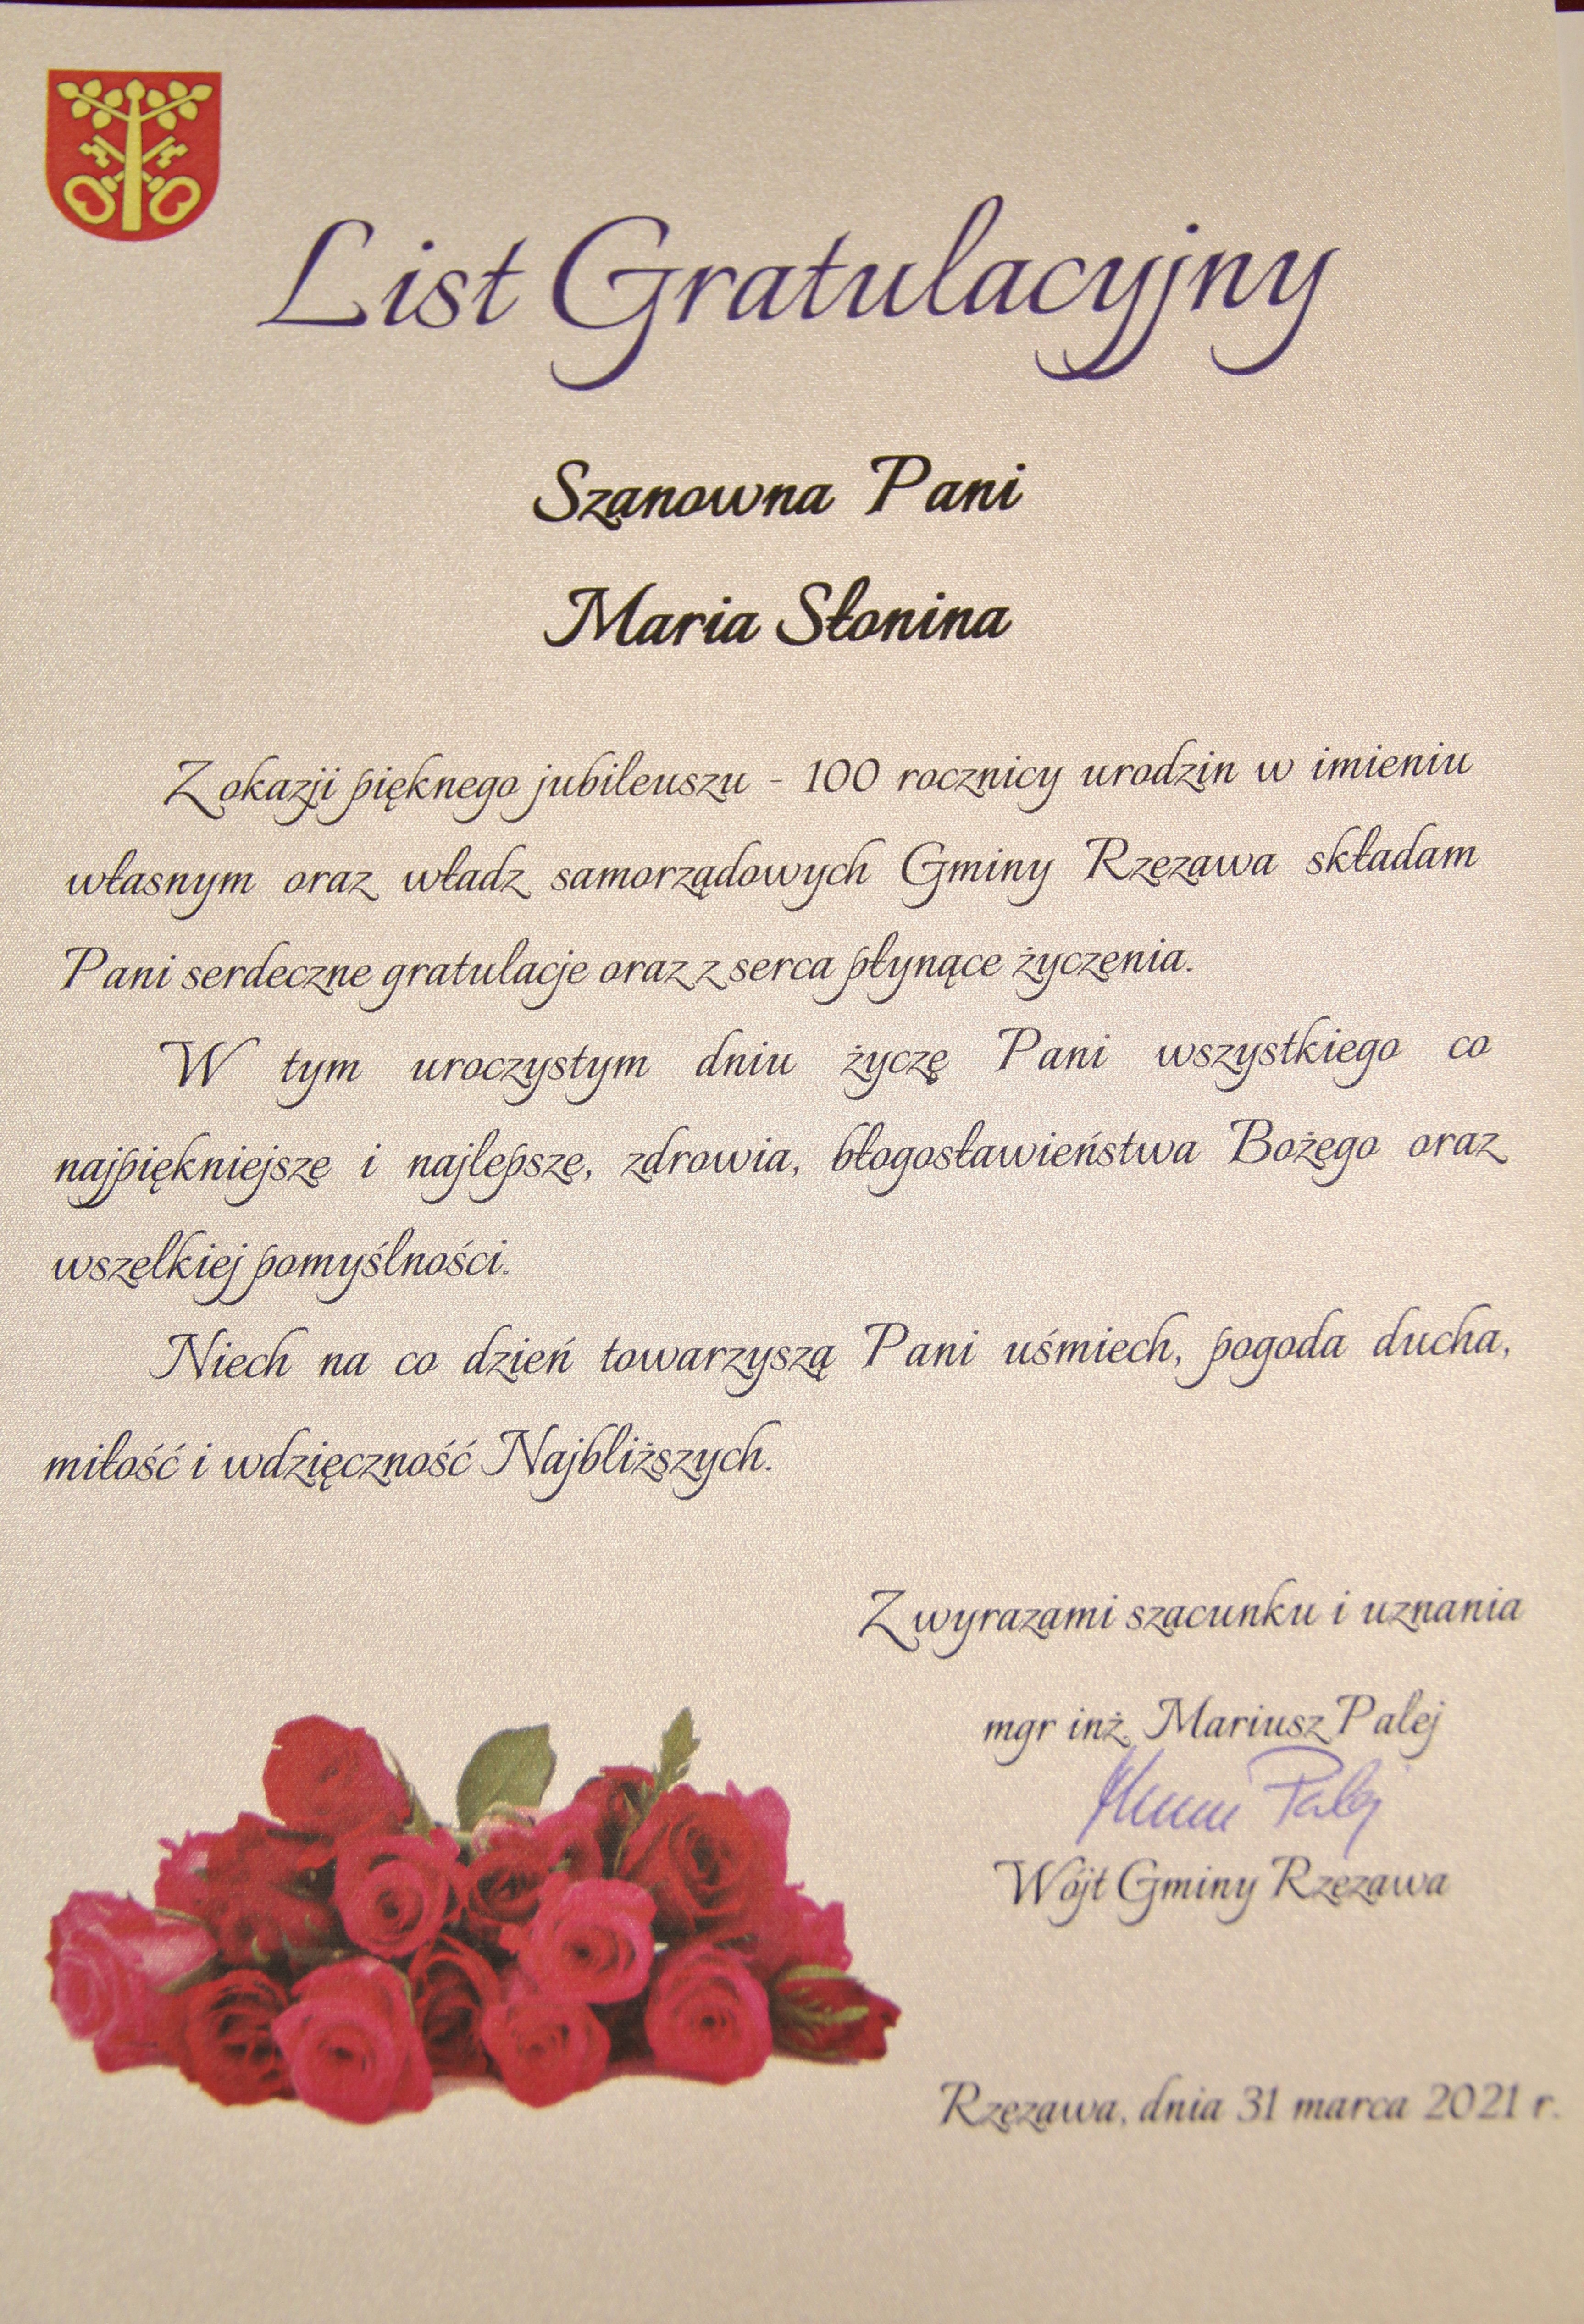 List Gratulacyjny
Szanowna Pani
Maria Słonina
Z okazji pięknego jubileuszu - 100 rocznicy urodzin w imieniu
własnym oraz władz samorządowych Gminy Rzezawa składam
Pani serdeczne gratulacje oraz z serca płynące życzenia.
W tym uroczystym dniu życzę Pani wszystkiego co
najpiękniejsze i najlepsze, zdrowia, błogosławieństwa Bożego oraz
wszelkiej pomyślności.
Niech na co dzień towarzyszą Pani uśmiech, pogoda ducha,
miłość i wdzięczność Najbliższych.
Z wyrazami szacunku i uznania
mgr inż. Mariusz Palej
Palej
Wójt Gminy Rzezawa
Rzezawa, dnia 31 marca 2021 r.